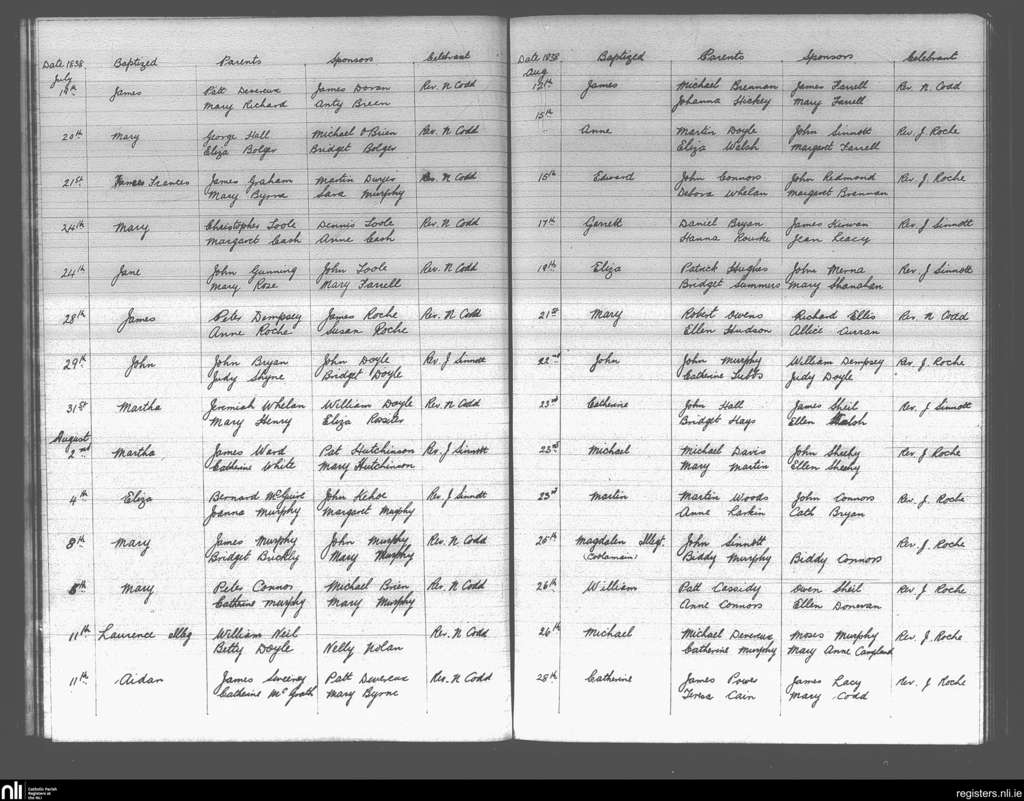 Date 1838 Baptized Parents Sponsors Celebrant
July
19th James Patt Devereux James Doran Rev. N Codd
Mary Richard Anty Breen
20th Mary George Hall Michael O'Brien Rev. N Codd
Eliza Bolger Bridget Bolger
21st Frances James Graham Martin Rev. N Codd
Mary Byrne Sara Murphy
24th Mary Christopher Toole Dennis Toole Rev. N Codd
Margaret Cash Anne Cash
24th Jane John Gunning John Toole Rev. N Codd
Mary Rose Mary Farrell
28th James Peter Dempsey James Roche Rev. N Codd
Anne Roche Susan Roche
29th John John Bryan John Doyle Rev. J Sinnott
Judy Shyne Bridget Doyle
31st Martha Jeremiah Whelan William Doyle Rev. N Codd
Mary Henry Eliza Rositer
August
2nd Martha James Ward Pat Hutchinson Rev. J Sinnott
Catherine White Mary Hutchinson
4th Eliza Bernard McGuire John Kehoe Rev. J Sinnott
Joanna Murphy Margaret Murphy
8th Mary James Murphy John Murphy Rev. N Codd
Bridget Brickley Mary Murphy
8th Mary Peter Connor Michael Brien Rev. N Codd
Catherine Murphy Mary Murphy
11th Laurence Illeg William Neil Rev. N Codd
Betty Doyle Nelly Nolan
11th Aidan James Sweeney Patt Devereux Rev. N Codd
Catherine McGrath Mary Byrne
Date 1838 Baptized Parents Sponsors Celebrant
Aug
12th James Michael Brennan James Farrell Rev. N Codd
Johanna Hickey Mary Farrell
15th
Anne Martin Doyle John Sinnott Rev. J Roche
Eliza Walsh Margaret Farrell
15th Edward John Connors John Redmond Rev. J Roche
Debora Whelan Margaret Brennan
17th Garrett Daniel Bryan James Kirwan Rev. J Sinnott
Hanna Rourke Jean Leacy
19th Eliza Patrick Hughes John Merna Rev. J Sinnott
Bridget Summers Mary Shanahan
21st Mary Robert Owens Richard Ellis Rev. N Codd
Ellen Hudson Allice Curran
22nd John John Murphy William Dempsey Rev. J Roche
Catherine Tubbs Judy Doyle
23rd Catherine John Hall James Sheil Rev. J Sinnott
Bridget Hays Ellen Walsh
23rd Michael Michael Davis John Sheehy Rev. J Roche
Mary Martin Ellen Sheehy
23rd Martin Martin Woods John Connors Rev. J. Roche
Anne Larkin Cath Bryan
25th Magdalen Illegt. John Sinnott Rev. J Roche
Biddy Murphy Biddy Connors
26th William Patt Cassidy Owen Sheil Rev. J Roche
Anne Connors Ellen Donevan
26th Michael Michael Devereux Moses Murphy Rev. J. Roche
Catherine Murphy Mary Anne
28th Catherine James Power James Lacy Rev. J Roche
Teresa Cain Mary Codd
nli Catholic Parish
Registers at
the NLI
registers.nli.ie